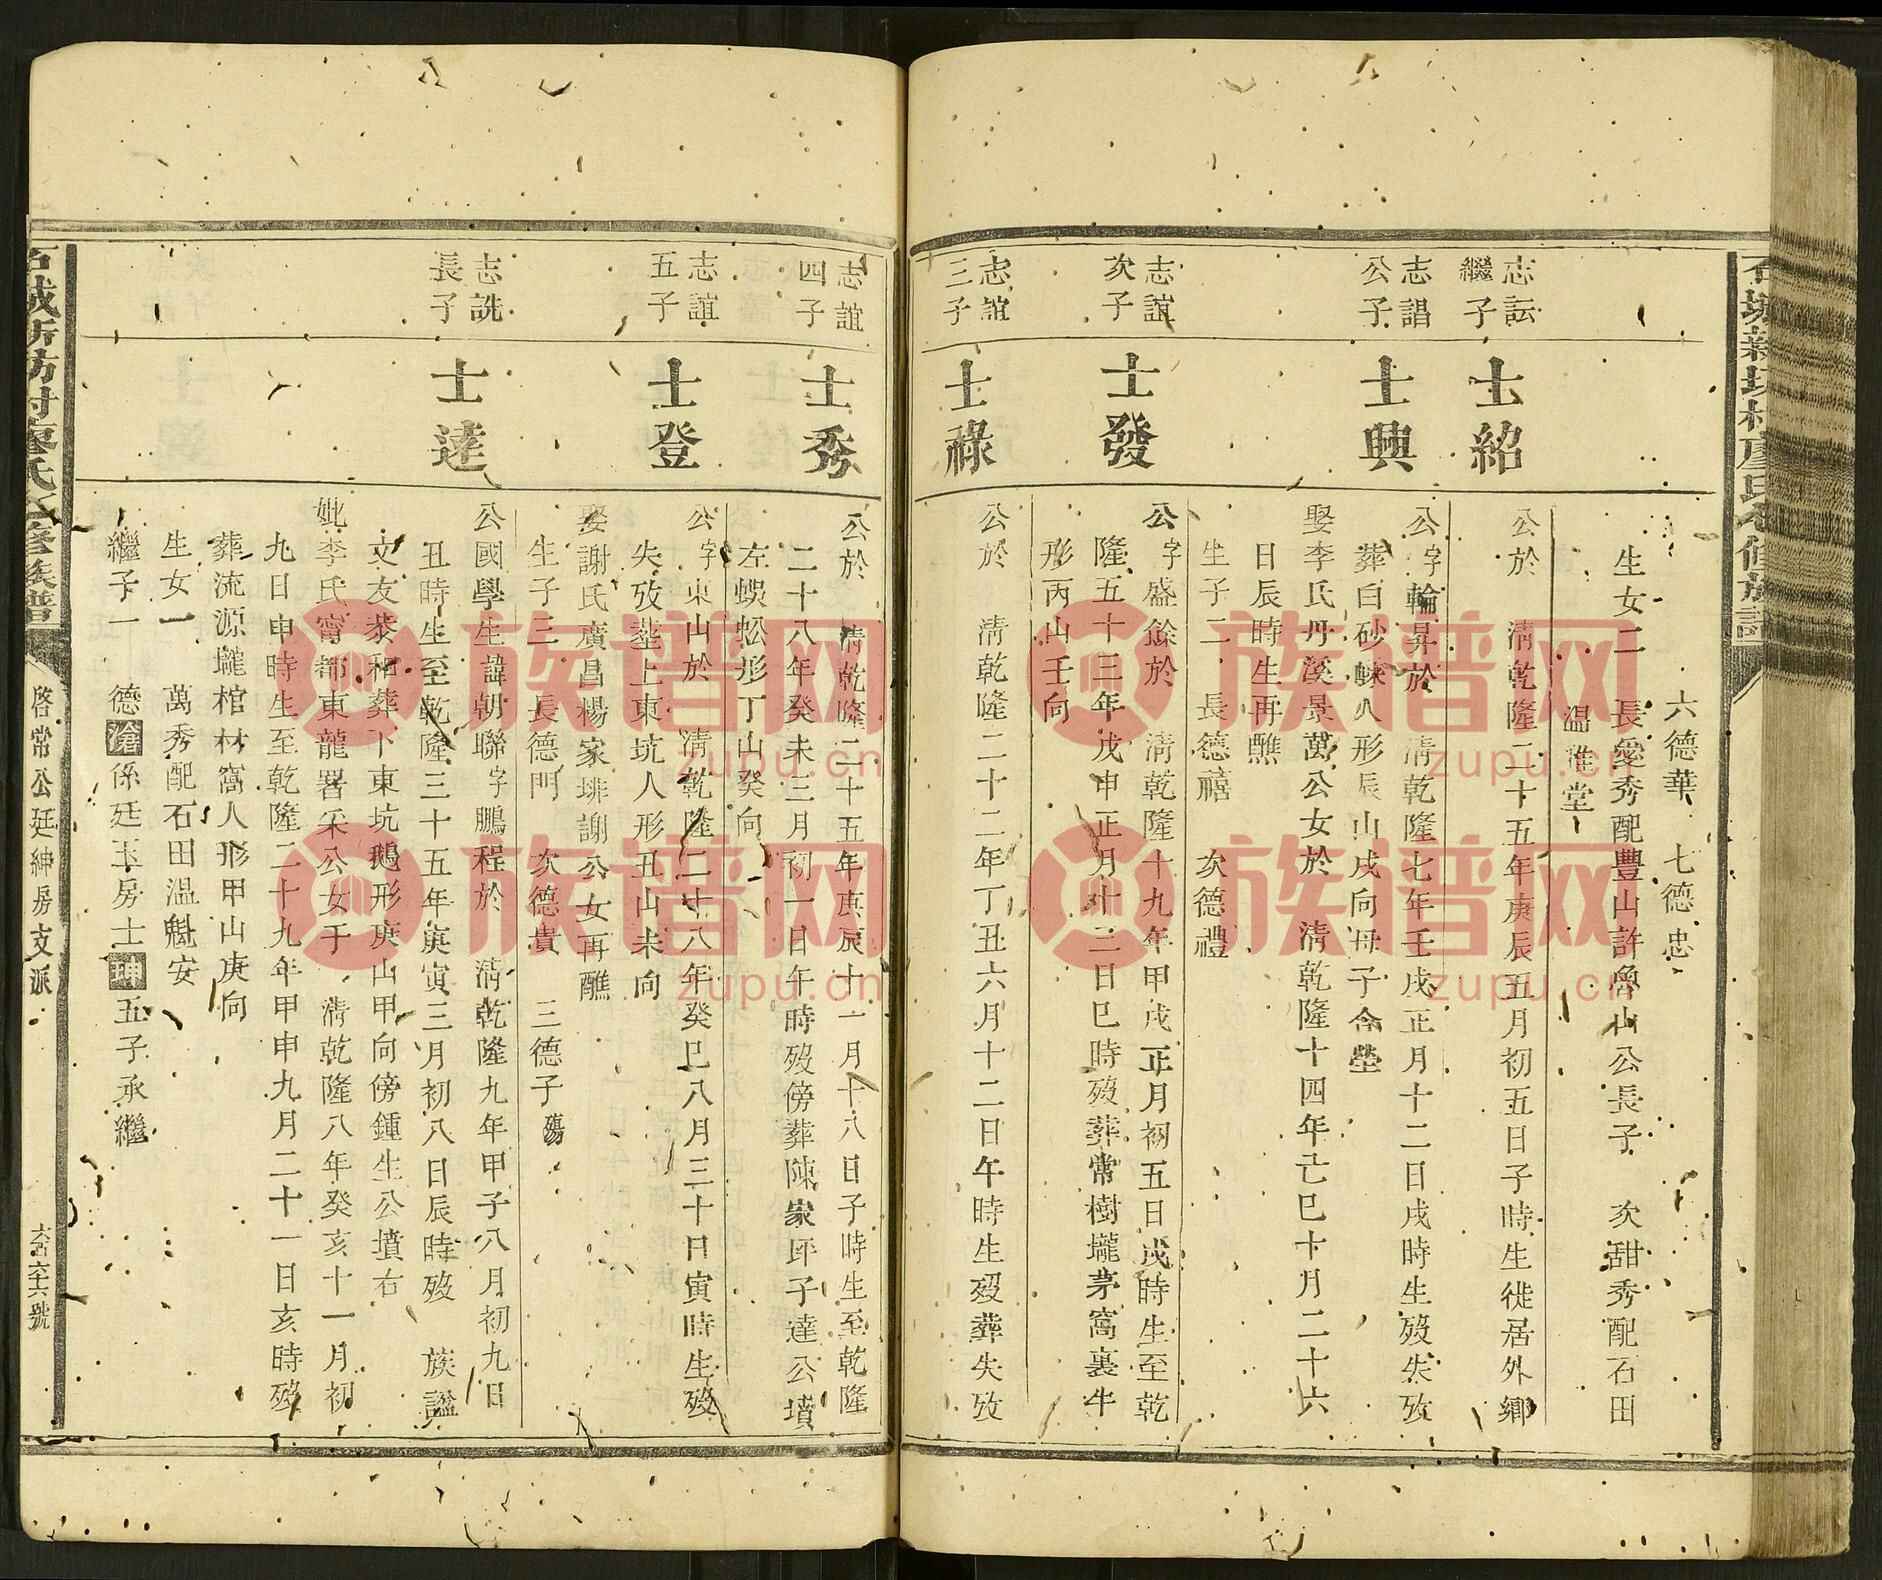 六德華　七德忠
生女二　長愛秀配豐山許魯山公長子　次甜秀配石田
溫　堂
志訟
繼子
士紹
公於　清乾隆二十五年庚辰五月初五日子時生徙居外鄉
志誯
公子
士興
公字輪昇於　清乾隆七年壬戌正月十二日戌時生歿失攷
葬白砂　人形辰山戌向母子合塋
娶李氏丹溪景萬公女於　清乾隆十四年己巳十月二十六
日辰時生再醮
生子二　長德禧　次德禮
志誼
次子
士發
公字盛餘於　清乾隆十九年甲戌正月初五日戌時生至乾
隆五十三年戊申正月十二日巳時歿葬常樹壠茅窩裏牛
形丙山壬向
志誼
三子
士祿
公於　清乾隆二十二年丁丑六月十二日午時生歿葬失攷
志誼
四子
士秀
公於　清乾隆二十五年庚辰十一月十八日子時生至乾隆
二十八年癸未三月初一日午時歿傍葬陳家坪子達公墳
左蜈蚣形丁山癸向
志誼
五子
士登
公字東山於　清乾隆三十八年癸巳八月三十日寅時生歿
失攷葬上東坑人形丑山未向
娶謝氏廣昌楊家排謝公女再醮
生子三　長德門　次德貴　三德子殤
志詵
長子
士達
公國學生諱朝聯字鵬程於　清乾隆九年甲子八月初九日
丑時生至乾隆三十五年庚寅三月初八日辰時歿　族謚
文友恭和葬下東坑鵝形庚山甲向傍鍾生公墳右
妣李氏甯都東龍署采公女于　清乾隆八年癸亥十一月初
九日申時生至乾隆二十九年甲申九月二十一日亥時歿
葬流源壠棺材窩人形甲山庚向
生女一　萬秀配石田溫魁安
繼子一　德滄係廷玉房士珅五子承繼
石城新坊村廖氏　修族譜
啓常公廷紳房支派
族谱网
zupu.cn
族谱网
zupu.cn
族谱网
zupu.cn
族谱网
zupu.cn